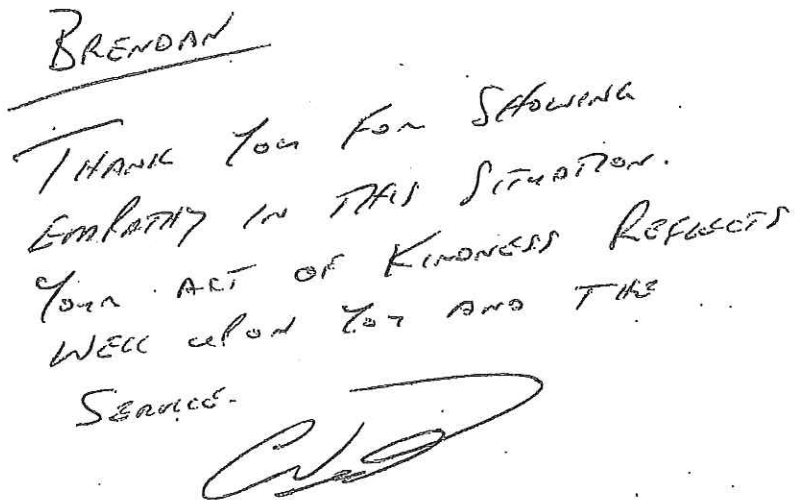 BRENDAN
THANK YOU FOR SHOWING
EMPATHY IN THIS SITUATION.
YOUR ACT OF KINDNESS REFLECTS
WELL UPON YOU AND THE
SERVICE.